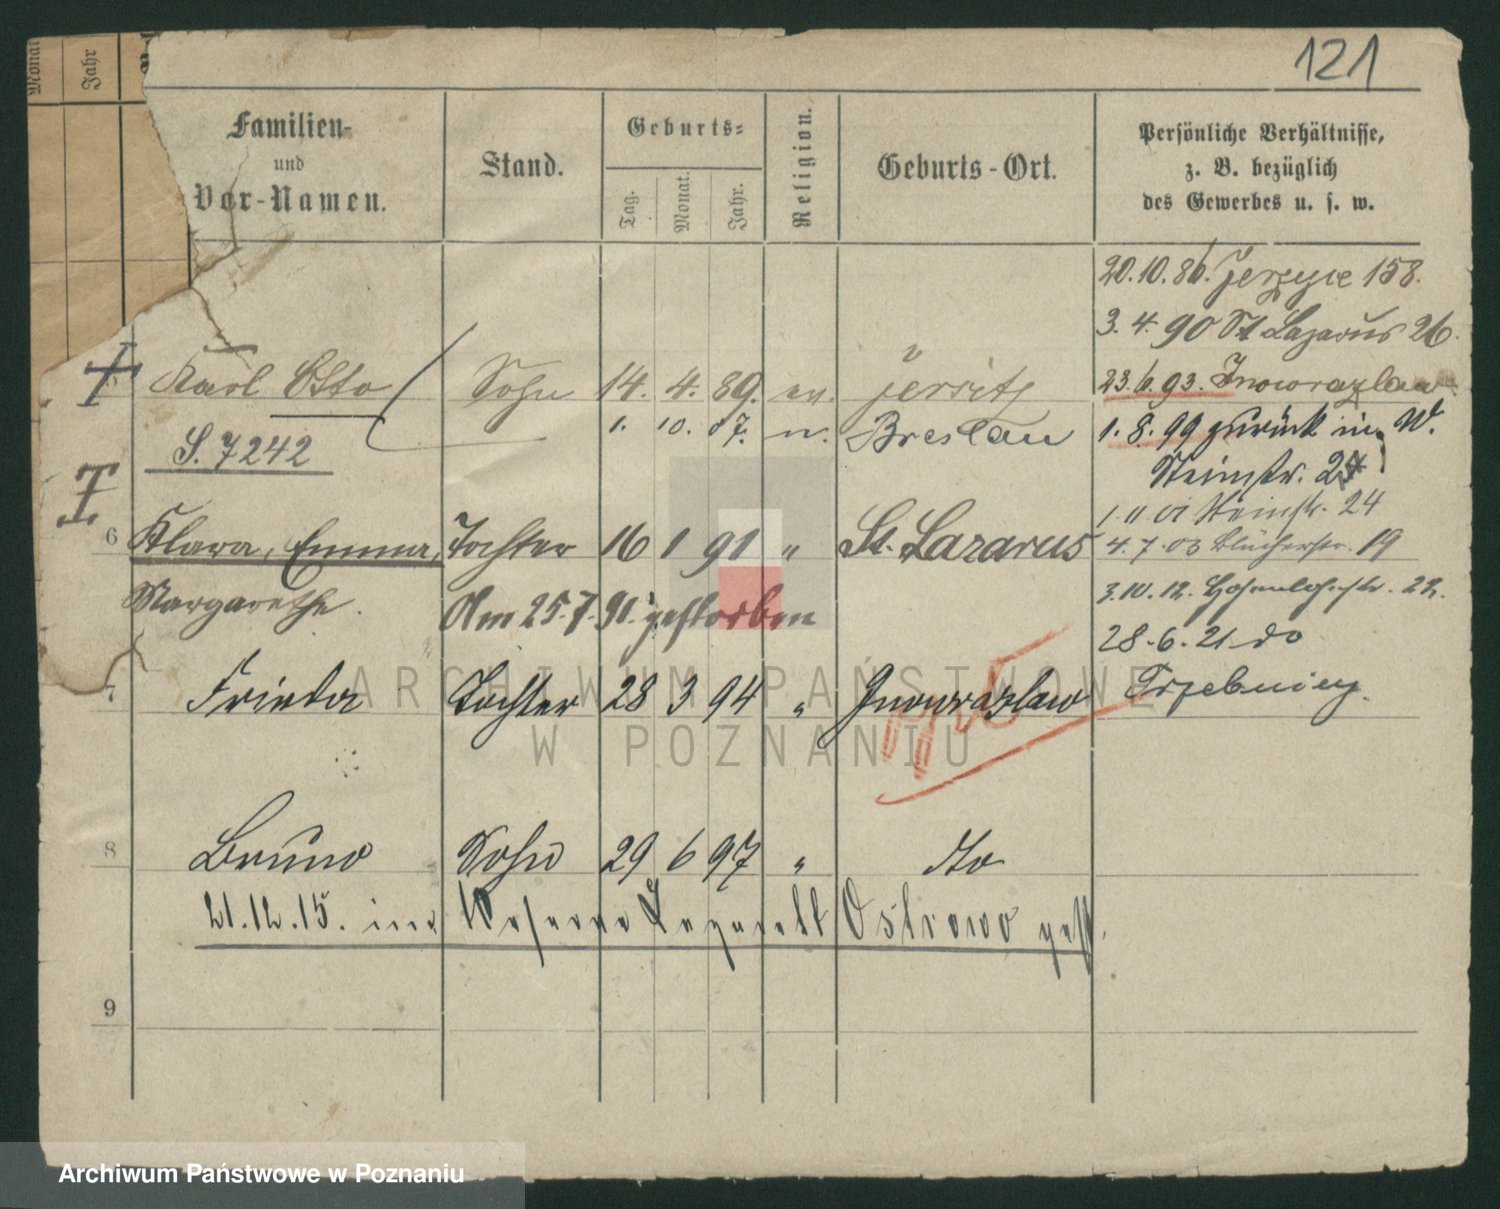 121
Monat
Jahr
Familien-
und
Vor-Namen.
Stand.
Geburts-
Tag.
Monat.
Jahr.
Religion.
Geburts-Ort.
Persönliche Verhältnisse,
z. B. bezüglich
des Gewerbes u. s. w.
20.10.86. Jerzyce 158.
3.4.90 St Lazarus 26.
Karl Otto Sohn 14. 4. 89. ev. Jersitz 23.6.93. Inowrazlaw
S. 7242 1. 10. 87. Breslau 1.8.99 zurück in W.
Steinstr. 24
1.11.01 Steinstr. 24
6 Klara, Emma, Tochter 16 1 91 " St. Lazarus 4.7.03 Blücherstr. 19
Margarethe. Am 25.7.91. gestorben 3.10.12. Hohenlohestr. 22.
28.6.21 do
7 Frieda Tochter 28 3 94 " Inowrazlaw
8 Bruno Sohn 29 6 97 " dto
21.12.15. im Reserve Lazarett Ostrowo gest.
9
ARCHIWUM PAŃSTWOWE
W POZNANIU
Archiwum Państwowe w Poznaniu